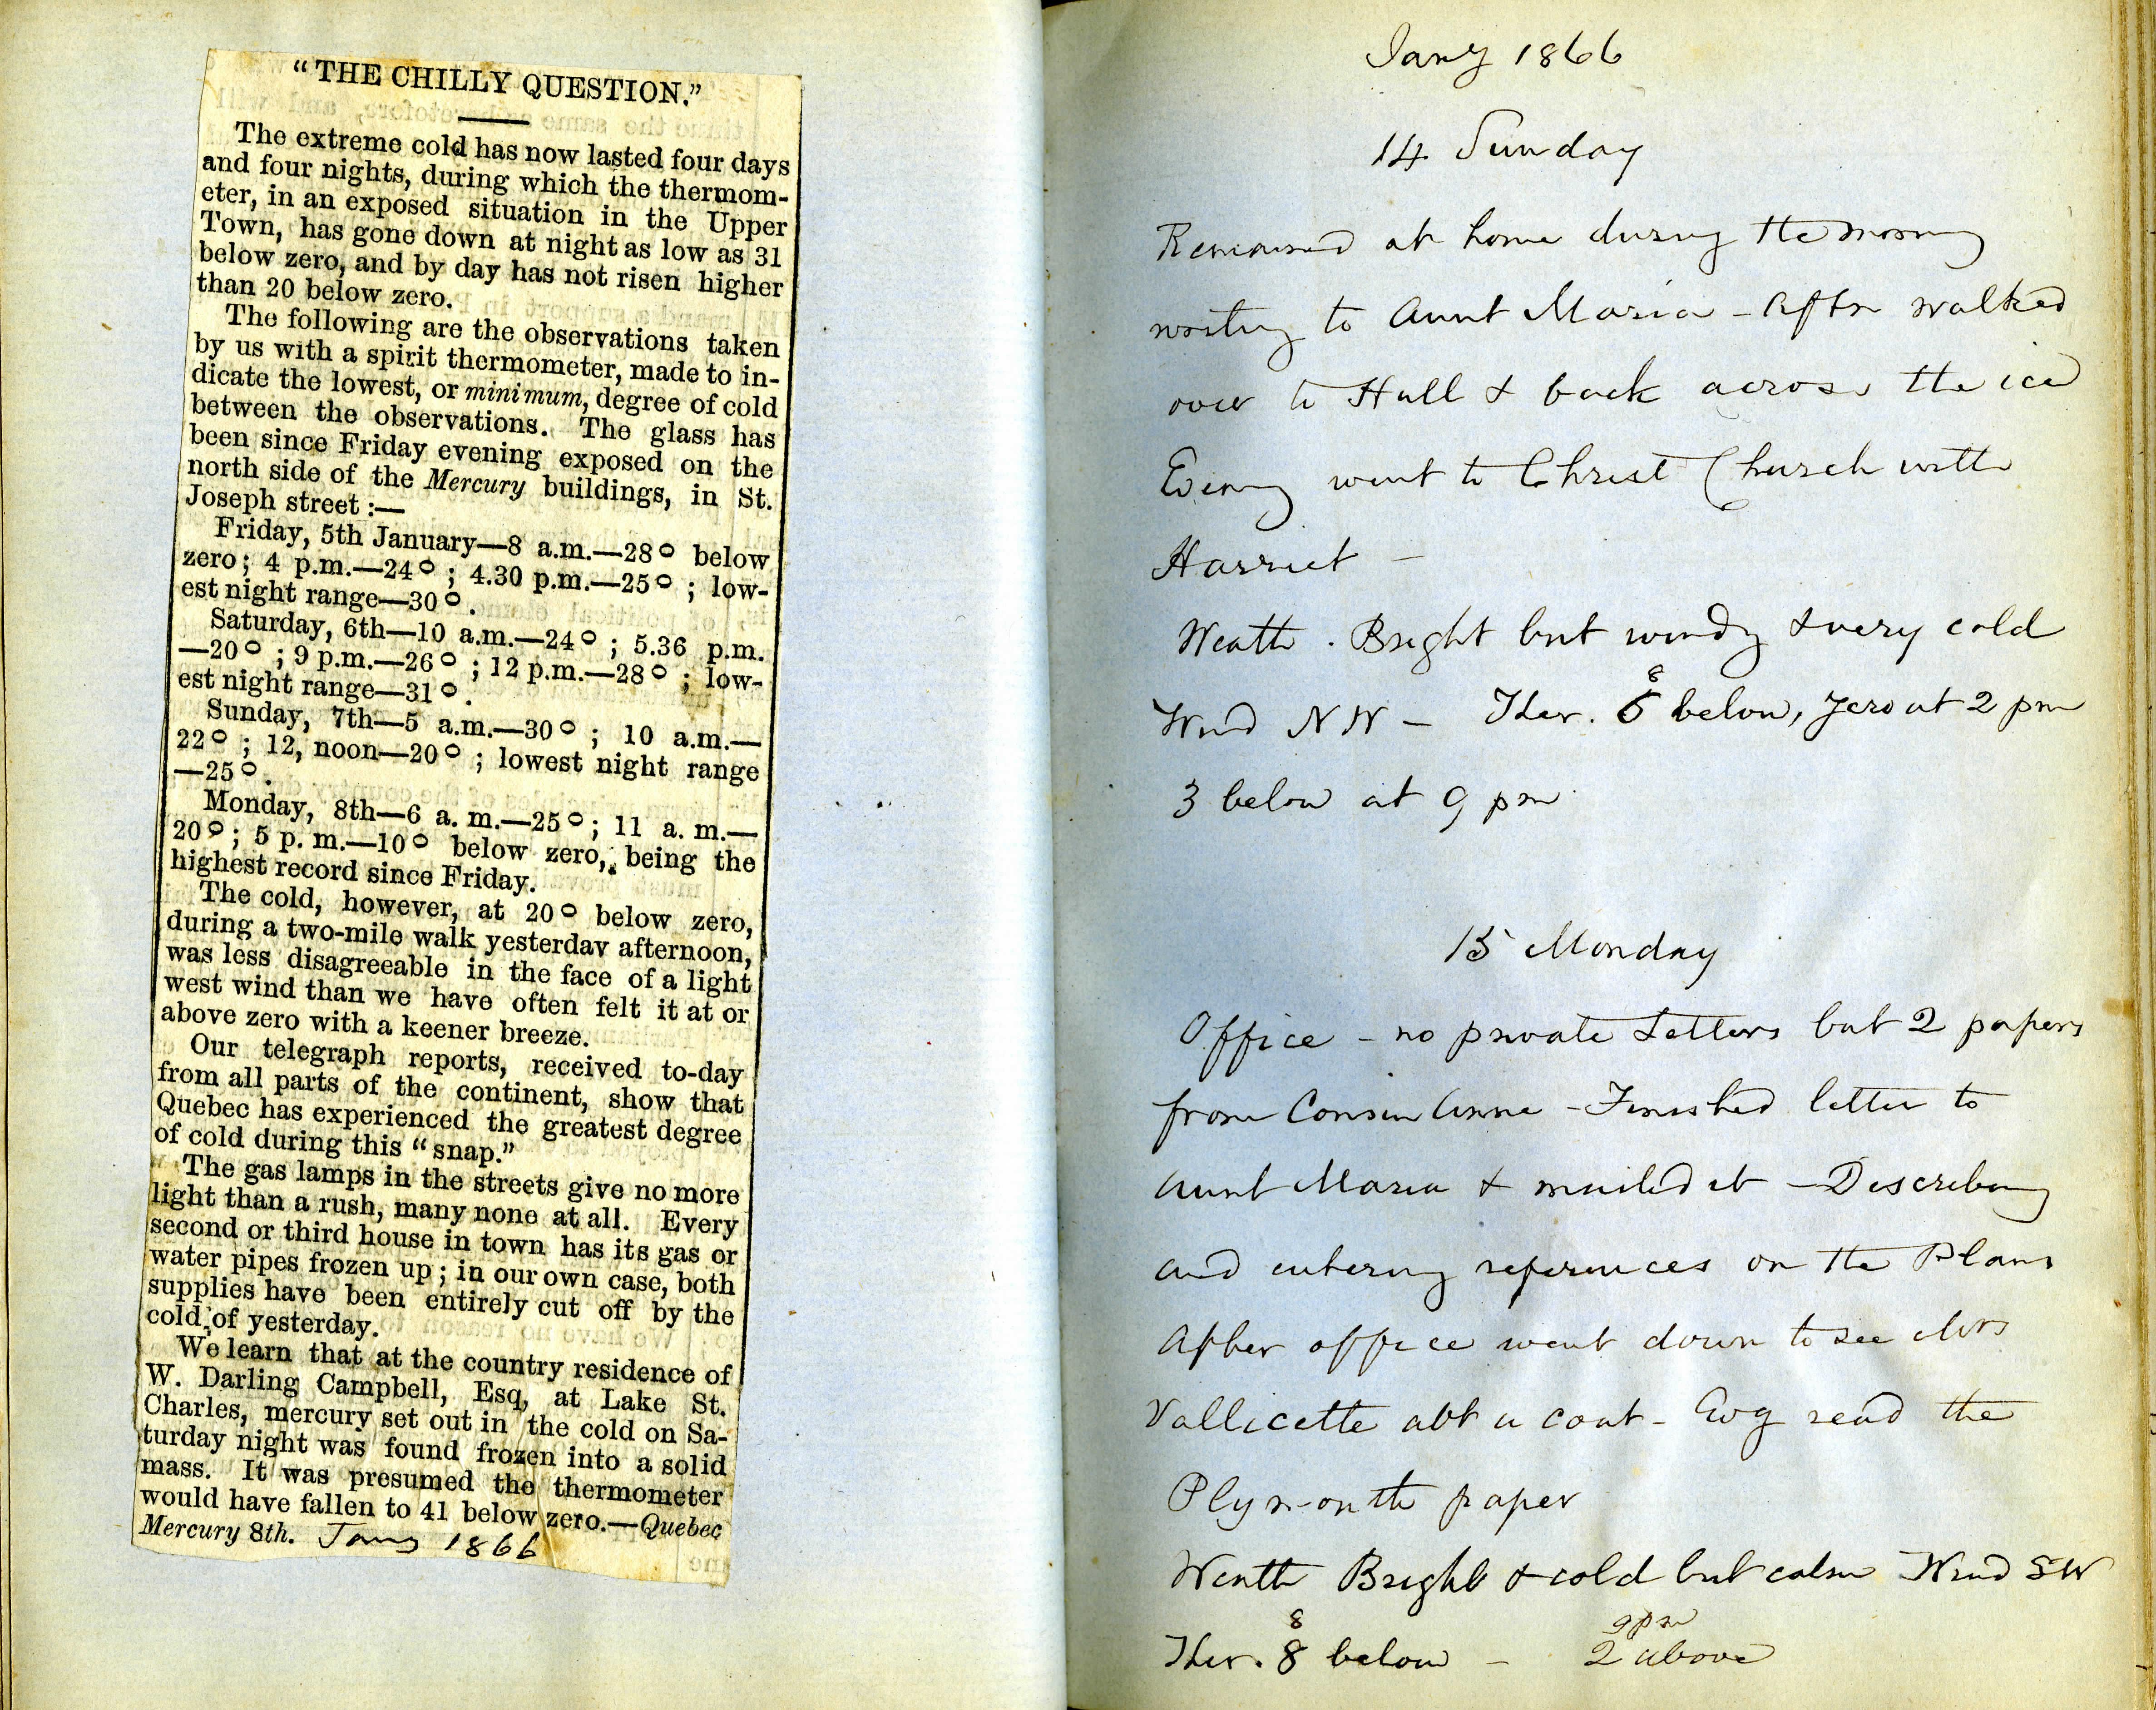 “THE CHILLY QUESTION.”
The extreme cold has now lasted four days
and four nights, during which the thermom-
eter, in an exposed situation in the Upper
Town, has gone down at night as low as 31
below zero, and by day has not risen higher
than 20 below zero.
The following are the observations taken
by us with a spirit thermometer, made to in-
dicate the lowest, or minimum, degree of cold
between the observations. The glass has
been since Friday evening exposed on the
north side of the Mercury buildings, in St.
Joseph street :—
Friday, 5th January—8 a.m.—28° below
zero; 4 p.m.—24° ; 4.30 p.m.—25° ; low-
est night range—30°.
Saturday, 6th—10 a.m.—24° ; 5.36 p.m.
—20° ; 9 p.m.—26° ; 12 p.m.—28° ; low-
est night range—31°.
Sunday, 7th—5 a.m.—30° ; 10 a.m.—
22° ; 12, noon—20° ; lowest night range
—25°.
Monday, 8th—6 a. m.—25° ; 11 a. m.—
20° ; 5 p. m.—10° below zero, being the
highest record since Friday.
The cold, however, at 20° below zero,
during a two-mile walk yesterday afternoon,
was less disagreeable in the face of a light
west wind than we have often felt it at or
above zero with a keener breeze.
Our telegraph reports, received to-day
from all parts of the continent, show that
Quebec has experienced the greatest degree
of cold during this “snap.”
The gas lamps in the streets give no more
light than a rush, many none at all. Every
second or third house in town has its gas or
water pipes frozen up ; in our own case, both
supplies have been entirely cut off by the
cold of yesterday.
We learn that at the country residence of
W. Darling Campbell, Esq, at Lake St.
Charles, mercury set out in the cold on Sa-
turday night was found frozen into a solid
mass. It was presumed the thermometer
would have fallen to 41 below zero.—Quebec
Mercury 8th. Jany 1866
Jany 1866
14 Sunday
Remained at home during the morng
writing to Aunt Maria - Aftn walked
over to Hull & back across the ice
Eveng went to Christ Church with
Harriet -
Weath. Bright but windy & very cold
Wind N W - Ther. 8 below, zero at 2 pm
3 below at 9 pm
15 Monday
Office - no private Letters but 2 papers
from Cousin Anne - Finished letter to
Aunt Maria & mailed it - Describing
and entering references on the Plans
After office went down to see Mrs
Vallicette abt a coat - Evg read the
Plymouth paper
Weath Bright & cold but calm Wind SW
8 9 pm
Ther. 8 below - 2 above